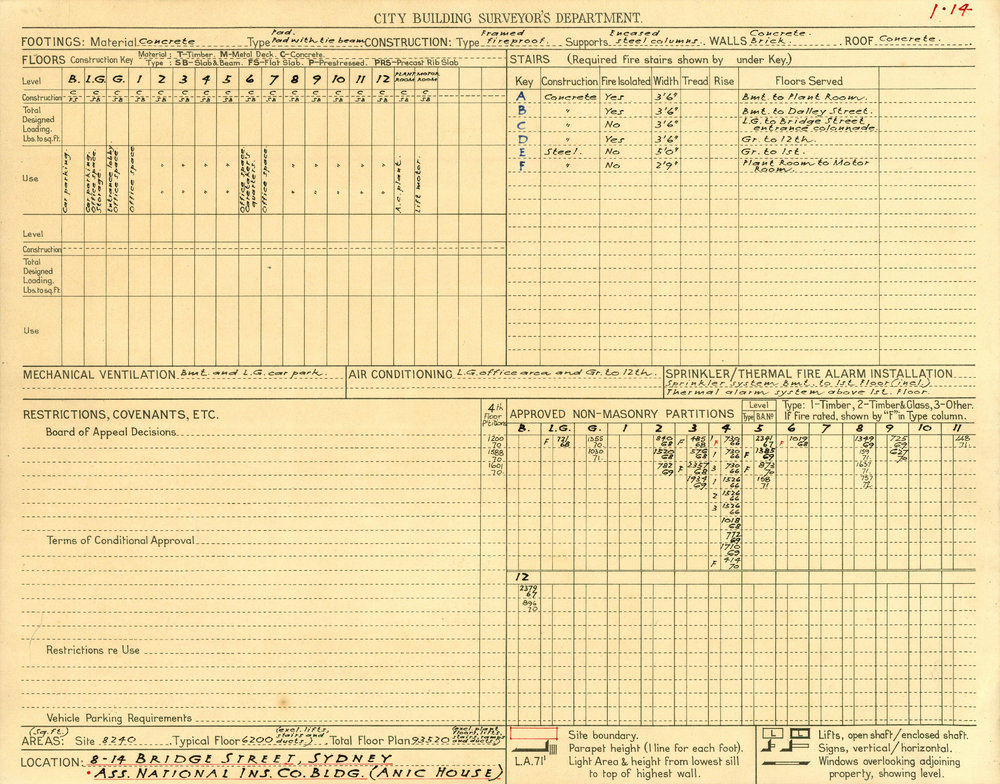 CITY BUILDING SURVEYOR'S DEPARTMENT.
1·14
FOOTINGS: Material Concrete Type Pad. Pad with tie beam CONSTRUCTION: Type Framed fireproof. Supports Encased steel columns. WALLS Concrete. Brick. ROOF Concrete.
FLOORS Construction Key Material: T-Timber. M-Metal Deck. C-Concrete.
Type: SB-Slab & Beam. FS-Flat Slab. P-Prestressed. PRS-Precast Rib Slab
Level B. L.G. G. 1 2 3 4 5 6 7 8 9 10 11 12 PLANT ROOM MOTOR ROOM
Construction C FS C SB C SB C SB C SB C SB C SB C SB C SB C SB C SB C SB C SB C SB C SB C SB C SB
Total Designed Loading. Lbs. to sq. ft.
Use Car parking Car parking. Office space. Storage. Entrance lobby Office space Office space " " " " Office space. Caretaker's quarters. Office space " " " " " A.c. plant. Lift motor.
Level
Construction
Total Designed Loading. Lbs. to sq. ft.
Use
STAIRS (Required fire stairs shown by under Key.)
Key Construction Fire Isolated Width Tread Rise Floors Served
A Concrete Yes 3'6" Bmt. to Plant Room.
B " Yes 3'6" Bmt. to Dalley Street.
C " No 3'6" L.G. to Bridge Street entrance colonnade.
D " Yes 3'6" Gr. to 12th.
E Steel. No 5'0" Gr. to 1st.
F " No 2'9" Plant Room to Motor Room.
MECHANICAL VENTILATION Bmt and L.G. car park.
AIR CONDITIONING L.G. office area and Gr. to 12th.
SPRINKLER/THERMAL FIRE ALARM INSTALLATION
Sprinkler system Bmt. to 1st Floor (incl.)
Thermal alarm system above 1st. Floor.
RESTRICTIONS, COVENANTS, ETC.
Board of Appeal Decisions
Terms of Conditional Approval
Restrictions re Use
Vehicle Parking Requirements
4th Floor P'titions
1200 70
1588 70.
1601 70.
APPROVED NON-MASONRY PARTITIONS
Level
Type B.A.Nº
Type: 1-Timber, 2-Timber & Glass, 3-Other.
If fire rated, shown by "F" in Type column.
B. L.G. G. 1 2 3 4 5 6 7 8 9 10 11
F 721 68 1355 70 840 68 F 485 68 1 730 66 2341 67 F 1019 68 1349 69 725 69
1030 71. 1520 68 576 68 1 730 66 F 1385 69 159 71 627 70
782 69 F 2357 68 3 730 66 F 873 70 1637 71
1934 69 1 1526 66 158 71 757 72
2 1526 66
3 1526 66
1018 68
772 69
1710 69
F 414 70
12
2379 67
896 70
AREAS: (Sq. ft.) Site 8240 Typical Floor 6200 (excl. lifts, stairs and ducts) Total Floor Plan 93520
LOCATION: 8-14 BRIDGE STREET, SYDNEY
• ASS. NATIONAL INS. CO. BLDG. (ANIC HOUSE)
Site boundary.
Parapet height (1 line for each foot).
L.A. 71' Light Area & height from lowest sill to top of highest wall.
L L Lifts, open shaft/enclosed shaft.
Signs, vertical/horizontal.
Windows overlooking adjoining property, showing level.